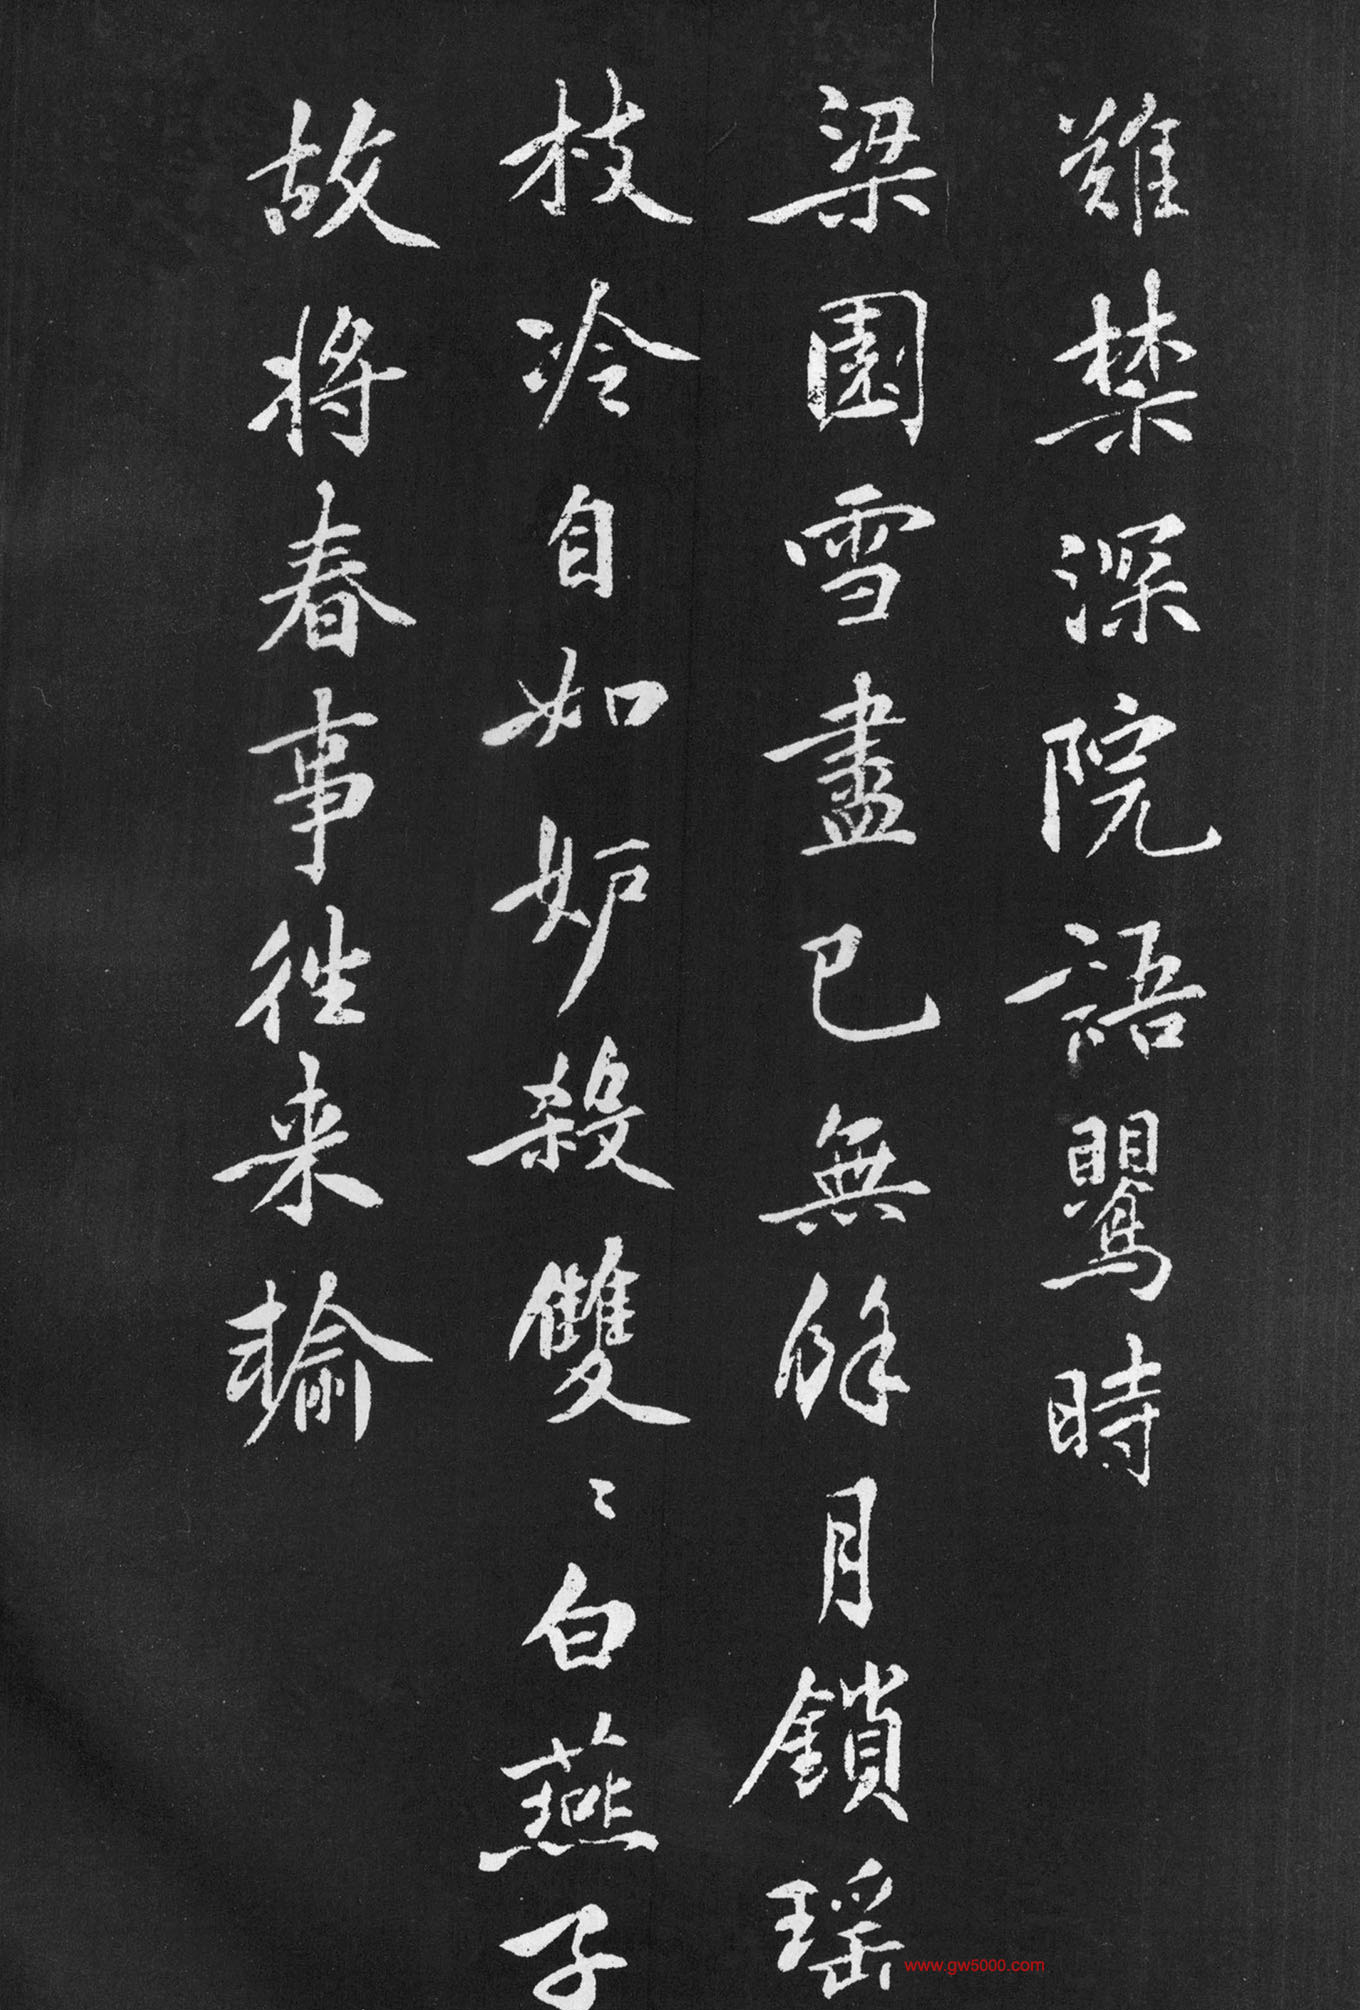 難禁深院語鸎時
梁園雪盡已無餘月鎖瑶
枝冷自如妒殺雙〻白燕子
故將春事往来輸
www.gw5000.com